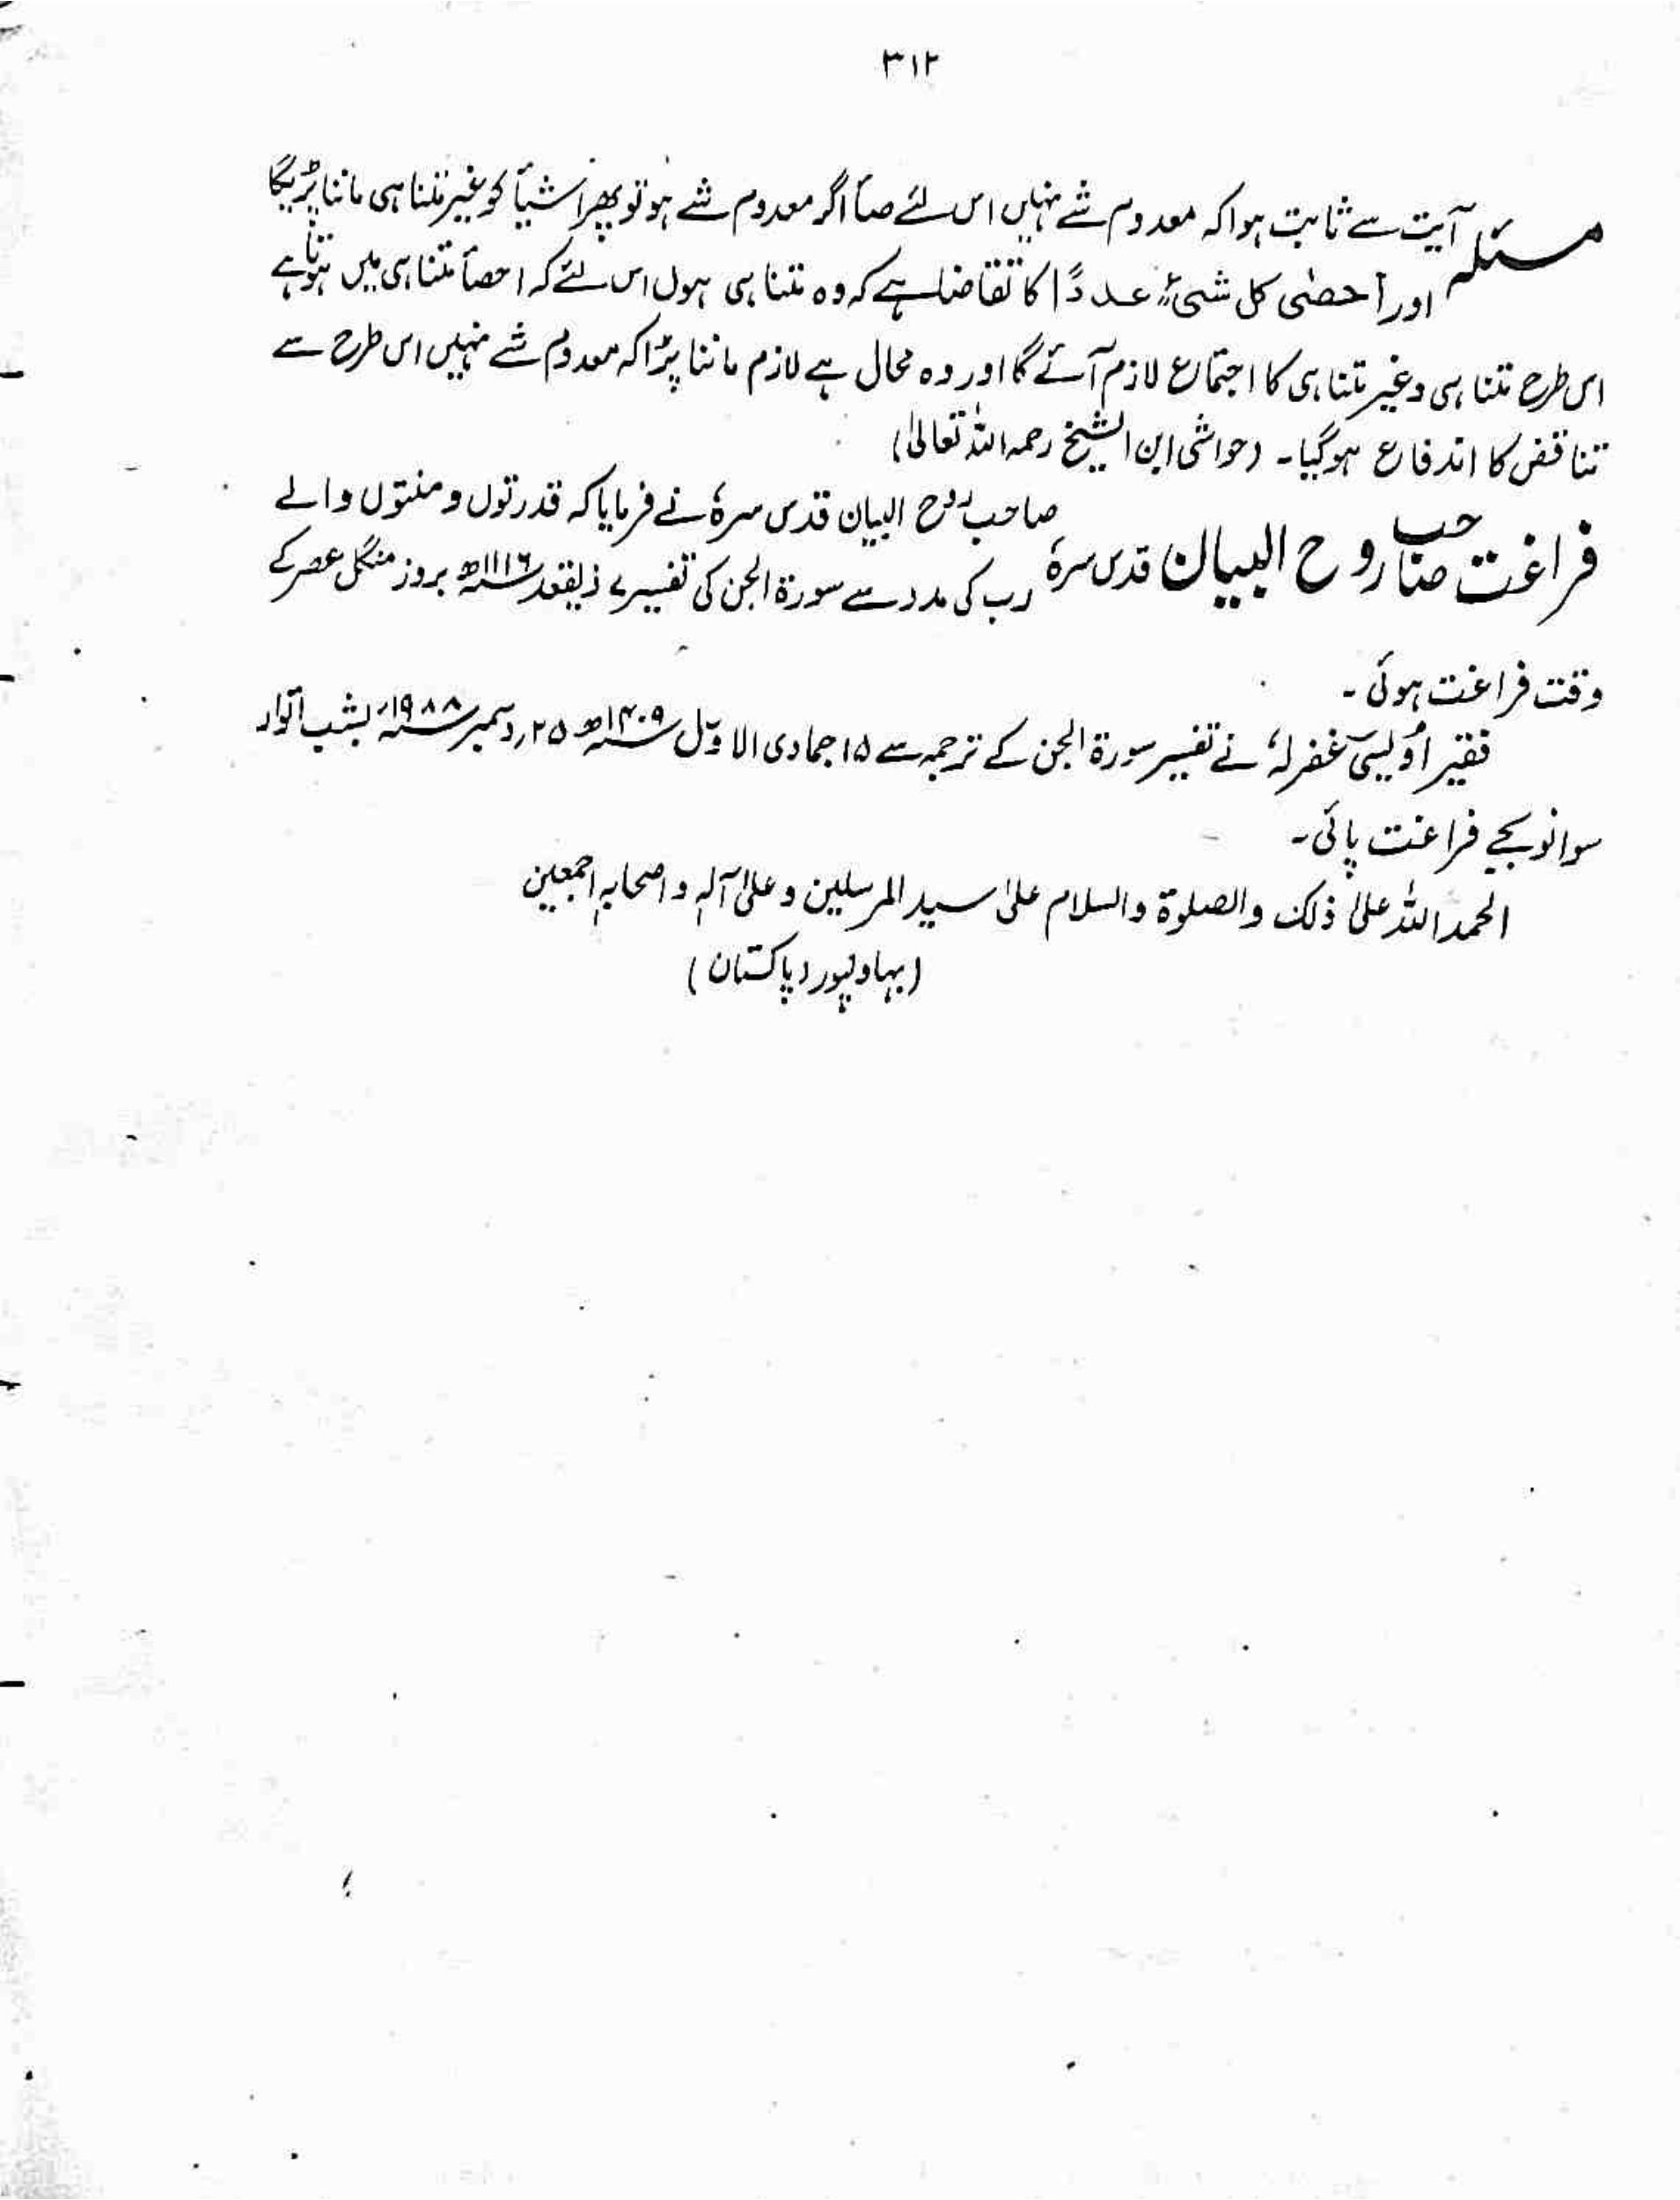 ۳۱۲
مسئلہ آیت سے ثابت ہوا کہ معدوم شے نہیں اس لئے صأ اگر معدوم شے ہو تو پھر اشیأ کو غیر متناہی ماننا پڑیگا
اور آحصٰی کل شیءٍ عددًا کا تقاضا ہے کہ وہ متناہی ہوں اس لئے کہ احصأ متناہی میں ہوتا ہے
اس طرح متناہی و غیر متناہی کا اجتماع لازم آئے گا اور وہ محال ہے لازم ماننا پڑا کہ معدوم شے نہیں اس طرح سے
تناقض کا اندفاع ہوگیا۔ (حواشی ابن الشیخ رحمہ اللہ تعالیٰ)
فراغت صاحب روح البیان قدس سرہٗ صاحب روح البیان قدس سرہٗ نے فرمایا کہ قدرتوں و منتوں والے
رب کی مدد سے سورۃ الجن کی تفسیر ے ذیقعد ۱۱۱۶ھ بروز منگل عصر کے
وقت فراغت ہوئی۔
فقیر اُویسی غفرلہٗ نے تفسیر سورۃ الجن کے ترجمہ سے ۱۵ جمادی الاوّل ۱۴۰۹ھ ۲۵ دسمبر ۱۹۸۸ء بشب اتوار
سوا نو بجے فراغت پائی۔
الحمد اللہ علیٰ ذلک والصلوۃ والسلام علیٰ سید المرسلین و علیٰ آلہٖ و اصحابہٖ اجمعین
(بہاولپور پاکستان)